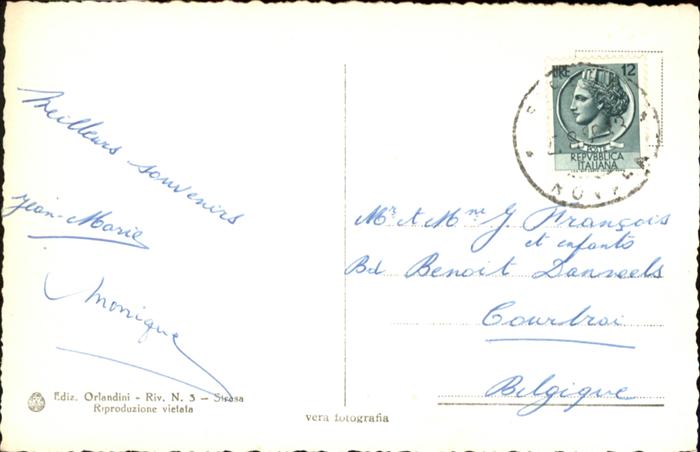 Meilleurs souvenirs
Jean-Marie
Monique
Ediz. Orlandini - Riv. N. 3 - Stresa
Riproduzione vietata
vera fotografia
LIRE 12
POSTE
REPVBBLICA
ITALIANA
Mr et Mme J. François
et enfants
Bd Benoit Danneels
Courtrai
Belgique